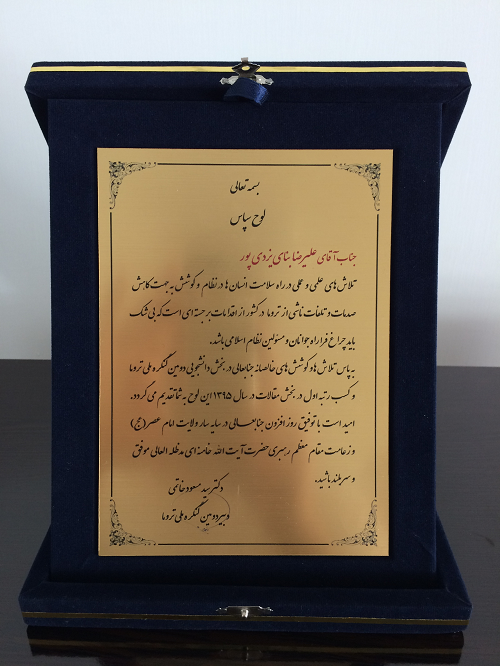 بسمه تعالی
لوح سپاس
جناب آقای علیرضا بنای یزدی پور
تلاش های علمی و عملی در راه سلامت انسان ها در نظام و کوشش به جهت کاهش
صدمات و تلفات ناشی از تروما در کشور از اقدامات برجسته ای است که بی شک
باید چراغ فرا راه جوانان و مسئولین نظام اسلامی باشد.
به پاس تلاش ها و کوشش های خالصانه جنابعالی در بخش دانشجویی دومین کنگره ملی تروما
و کسب رتبه اول در بخش مقالات در سال ۱۳۹۵ این لوح به شما تقدیم می گردد.
امید است با توفیق روز افزون جنابعالی در سایه سار ولایت امام عصر (عج)
و زعامت مقام معظم رهبری حضرت آیت الله خامنه ای مدظله العالی موفق
و سربلند باشید.
دکتر سید مسعود خاتمی
دبیر دومین کنگره ملی تروما